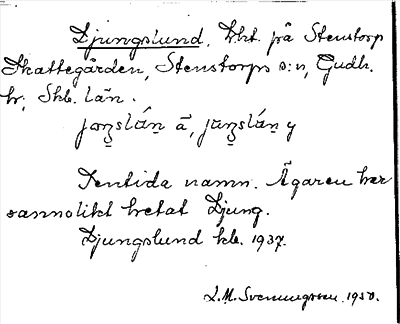 Ljungslund, lht. på Stenstorp
Skattegården, Stenstorps s:n, Gudh.
hr, Skb. län.
Sentida namn. Ägaren har
sannolikt hetat Ljung.
Ljungslund kb. 1937.
L.M. Svenungsson. 1930.